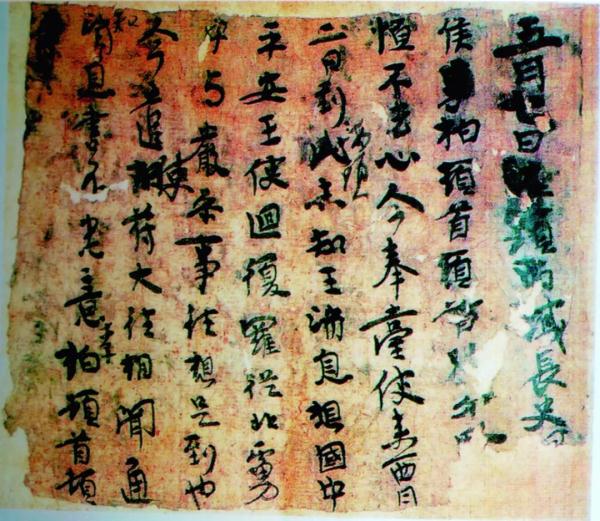 五月七日海頭西域長史
侯李柏頓首頓首別
恒不去心今奉臺使來西月
二日到此海頭未知王消息想國中
平安王使迴復羅從北虜
中与嚴參事往想是到也
今遣使苻大往相聞通
知消息書不悉意李柏頓首頓